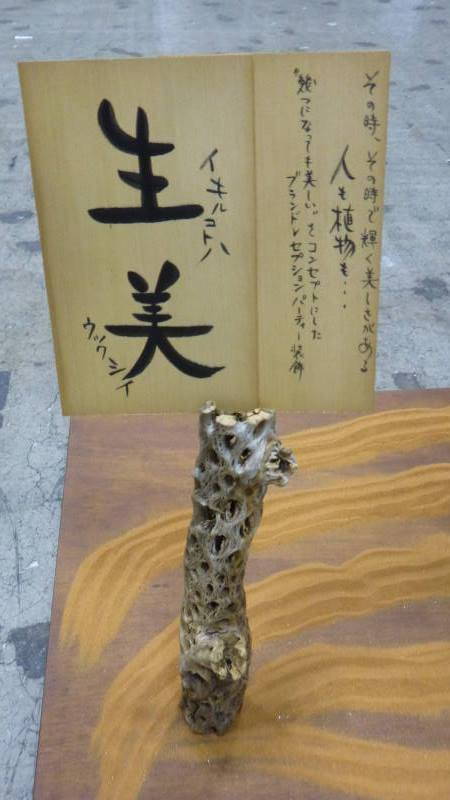 その時、その時で輝く美しさがある
人も植物も・・・
"幾つになっても美しい"をコンセプトにした
ブランドレセプションパーティー装飾
生 イキルコトハ
美 ウツクシイ